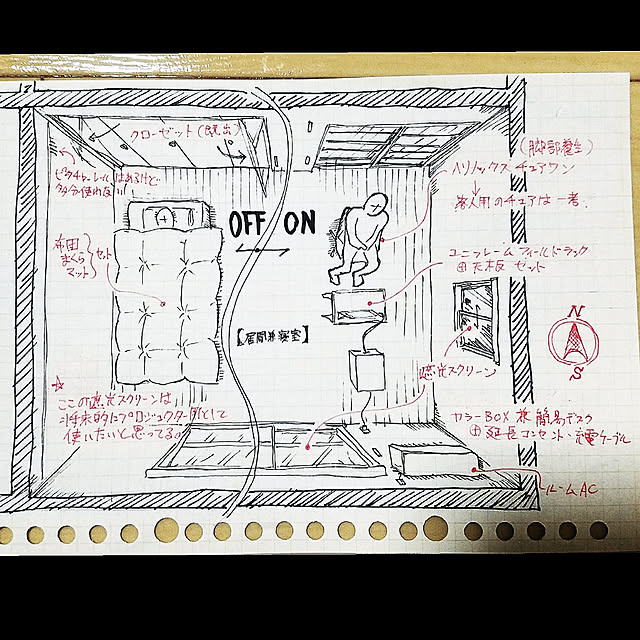 クローゼット(既出)
ピクチャーレールはあるけど
多分使わない
布団
まくら
マット
セット
OFF ON
【居間兼寝室】
(脚部養生)
ヘリノックス チェアワン
家人用のチェアは一考.
ユニフレーム フィールドラック
⊕天板 セット
N
S
遮光スクリーン
☆
この遮光スクリーンは
将来的にプロジェクター用として
使いたいと思ってる。
カラーBOX 兼 簡易デスク
⊕ 延長コンセント・充電ケーブル
ルームAC